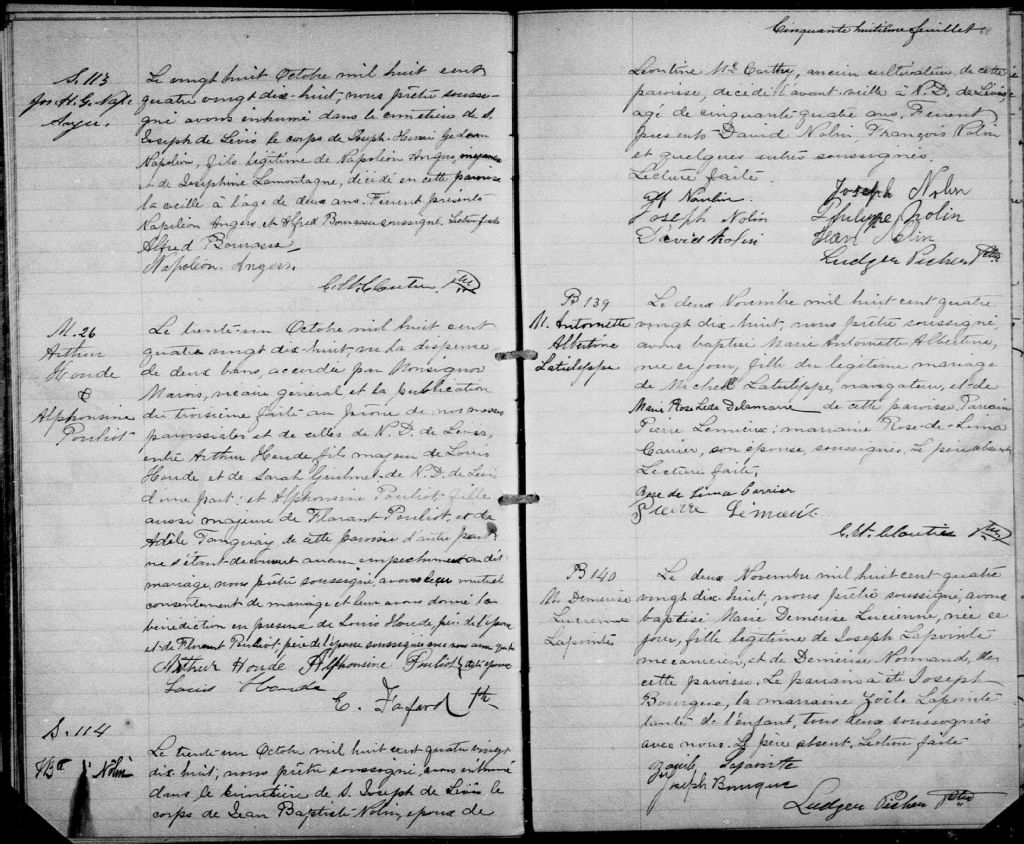 S. 113
Jos. H. G. Nap.
Angers.
Le vingt huit Octobre mil huit cent
quatre vingt dix-huit, nous prêtre soussi-
gné avons inhumé dans le cimetière de S.
Joseph de Lévis le corps de Joseph Henri Gédéon
Napoléon, fils légitime de Napoléon Angers,
et de Joséphine Lamontagne, décédé en cette paroisse
la veille à l'age de deux ans. Furent présents
Napoléon Angers et Alfred Bourassa soussignés. Lecture faite
Alfred Bourassa
Napoléon Angers.
C. Ed. Cloutier Ptre
M. 26
Arthur
Houde
&
Alphonsine
Pouliot
Le trente-un Octobre mil huit cent
quatre vingt dix-huit, vu la dispense
de deux bans, accordée par Monsignor
Marois, vicaire général et la publication
du troisième faite au prône de nos messes
paroissiales et de celles de N. D. de Lévis,
entre Arthur Houde fils majeur de Louis
Houde et de Sarah de N. D. de Lévis
d'une part; et Alphonsine Pouliot fille
aussi majeure de Florant Pouliot et de
Adèle Tanguay de cette paroisse d'autre part
ne s'étant découvert aucun empêchement au dit
mariage, nous prêtre soussigné, avons reçu mutuel
consentement de mariage et leur avons donné la
bénédiction en présence de Louis Houde père de l'époux
et de Florant Pouliot, père de l'épouse soussignés avec nous ainsi que
Arthur Houde Alphonsine Pouliot
Louis Houde
C. Fafard Ptre
S. 114
J Bte Nolin
Le trente-un Octobre mil huit cent quatre vingt
dix-huit, nous prêtre soussigné, avons inhumé
dans le cimetière de S. Joseph de Lévis le
corps de Jean Baptiste Nolin, époux de
Cinquante huitième feuillet
Léontine Mc Carthy, ancien cultivateur de cette
paroisse, décédé l'avant-veille à N. D. de Lévis,
agé de cinquante quatre ans. Furent
présents David Nolin, François Nolin
et quelques autres soussignés.
Lecture faite.
Joseph Nolin
Joseph Nolin
Philippe Nolin
David Nolin
Jean Nolin
Ludger Pichet Ptre
B 139
M. Antoinette
Albertine
Latulippe
Le deux Novembre mil huit cent quatre
vingt dix-huit, nous prêtre soussigné,
avons baptisé Marie Antoinette Albertine,
née ce jour, fille du légitime mariage
de Michel Latulippe, navigateur, et de
Marie Rose Leda Delamarre de cette paroisse. Parrain
Pierre Lemieux; marraine Rose-de-Lima
Carrier, son épouse, soussignés. Le père absent
Lecture faite,
Rose de Lima Carrier
Pierre Lemieux
C. Ed. Cloutier Ptre
B 140
M. Demerise
Lucienne
Lapointe
Le deux Novembre mil huit cent quatre
vingt dix-huit, nous prêtre soussigné, avons
baptisé Marie Demerise Lucienne, née ce
jour, fille légitime de Joseph Lapointe
mécanicien, et de Demerise Normand, de
cette paroisse. Le parrain a été Joseph
Bourque, la marraine Zoïle Lapointe
tante de l'enfant, tous deux soussignés
avec nous. Le père absent. Lecture faite
Lapointe
Joseph Bourque
Ludger Pichet Ptre